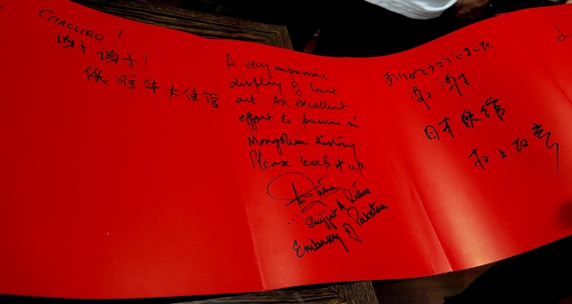 СПАСИБО !
谢谢 谢谢!
俄驻华大使馆
A very impressive
display of local
art. An excellent
effort to preserve
Mongolian history.
Please keep it up.
Embassy of Pakistan
ありがとうございました
谢谢
日本使館